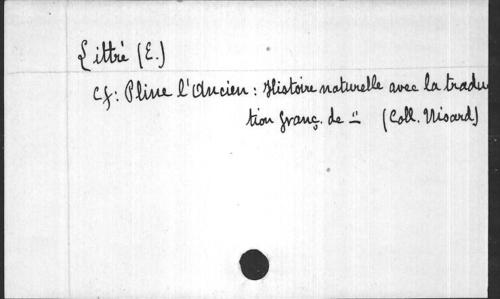 Littré (E.)
Cf: Pline l'Ancien: Histoire naturelle avec la traduc
tion franç. de = (Coll. Nisard)